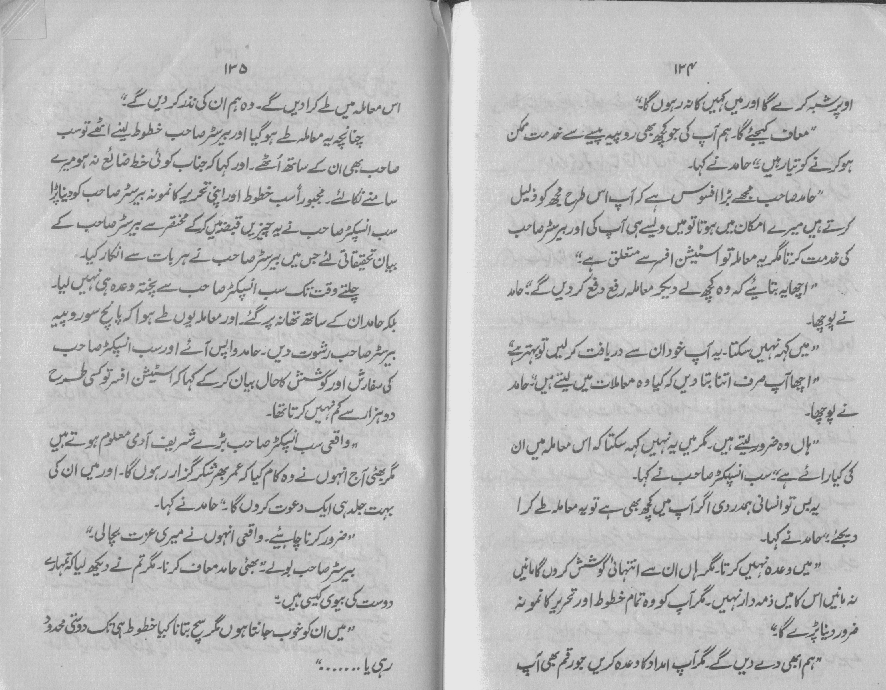 ۱۲۴
اوپر شبہ کرے گا اور میں کہیں کا نہ رہوں گا۔"
"معاف کیجئے گا۔ ہم آپ کی جو کچھ بھی روپیہ پیسے سے خدمت ممکن
ہو کرنے کو تیار ہیں" حامد نے کہا۔
"حامد صاحب مجھے بڑا افسوس ہے کہ آپ اس طرح مجھ کو ذلیل
کرتے ہیں میرے امکان میں ہوتا تو میں ویسے ہی آپ کی اور بیرسٹر صاحب
کی خدمت کرتا مگر یہ معاملہ تو اسٹیشن افسر سے متعلق ہے۔"
"اچھا یہ بتائیے کہ وہ کچھ لے دیکر معاملہ رفع دفع کر دیں گے" حامد
نے پوچھا۔
"میں کہہ نہیں سکتا۔ یہ آپ خود ان سے دریافت کر لیں تو بہتر ہے"
"اچھا آپ صرف اتنا بتا دیں کہ کیا وہ معاملات میں لیتے ہیں" حامد
نے پوچھا۔
"ہاں وہ ضرور لیتے ہیں۔ مگر میں یہ نہیں کہہ سکتا کہ اس معاملہ میں ان
کی کیا رائے ہے" سب انسپکٹر صاحب نے کہا۔
یہ بس تو انسانی ہمدردی اگر آپ میں کچھ بھی ہے تو یہ معاملہ طے کرا
دیجئے" حامد نے کہا۔
"میں وعدہ نہیں کرتا۔ مگر ہاں ان سے انتہائی کوشش کروں گا مانیں
نہ مانیں اس کا میں ذمہ دار نہیں۔ مگر آپ کو وہ تمام خطوط اور تحریر کا نمونہ
ضرور دینا پڑے گا۔"
"ہم ابھی دے دیں گے۔ مگر آپ امداد کا وعدہ کریں جو رقم بھی آپ
۱۲۵
اس معاملہ میں طے کرا دیں گے۔ وہ ہم ان کی نذر کر دیں گے۔"
چنانچہ یہ معاملہ طے ہو گیا اور بیرسٹر صاحب خطوط لینے اٹھے تو سب
صاحب بھی ان کے ساتھ اٹھے۔ اور کہا کہ جناب کوئی خط ضائع نہ ہو میرے
سامنے نکالئے۔ مجبوراً سب خطوط اور اپنی تحریر کا نمونہ بیرسٹر صاحب کو دینا پڑا
سب انسپکٹر صاحب نے یہ چیزیں قبضہ میں کر کے مختصر سے بیرسٹر صاحب کے
بیان تحقیقاتی لئے جس میں بیرسٹر صاحب نے ہر بات سے انکار کیا۔
چلتے وقت تک سب انسپکٹر صاحب سے پختہ وعدہ ہی نہیں لیا۔
بلکہ حامد ان کے ساتھ تھانہ پر گئے۔ اور معاملہ یوں طے ہوا کہ پانچ سو روپیہ
بیرسٹر صاحب رشوت دیں۔ حامد واپس آئے اور سب انسپکٹر صاحب
کی سفارش اور کوشش کا حال بیان کر کے کہا کہ اسٹیشن افسر تو کسی طرح
دو ہزار سے کم نہیں کرتا تھا۔
"واقعی سب انسپکٹر صاحب بڑے شریف آدمی معلوم ہوتے ہیں
مگر بھئی آج انہوں نے وہ کام کیا کہ عمر بھر شکر گزار رہوں گا۔ اور میں ان کی
بہت جلد ہی ایک دعوت کروں گا۔" حامد نے کہا۔
"ضرور کرنا چاہیے۔ واقعی انہوں نے میری عزت بچا لی۔"
بیرسٹر صاحب بولے۔ "بھئی حامد معاف کرنا۔ مگر تم نے دیکھ لیا کہ تمہارے
دوست کی بیوی کیسی ہیں۔"
"میں ان کو خوب جانتا ہوں مگر سچ بتانا کیا خطوط ہی تک دوستی محدود
رہی یا ......."